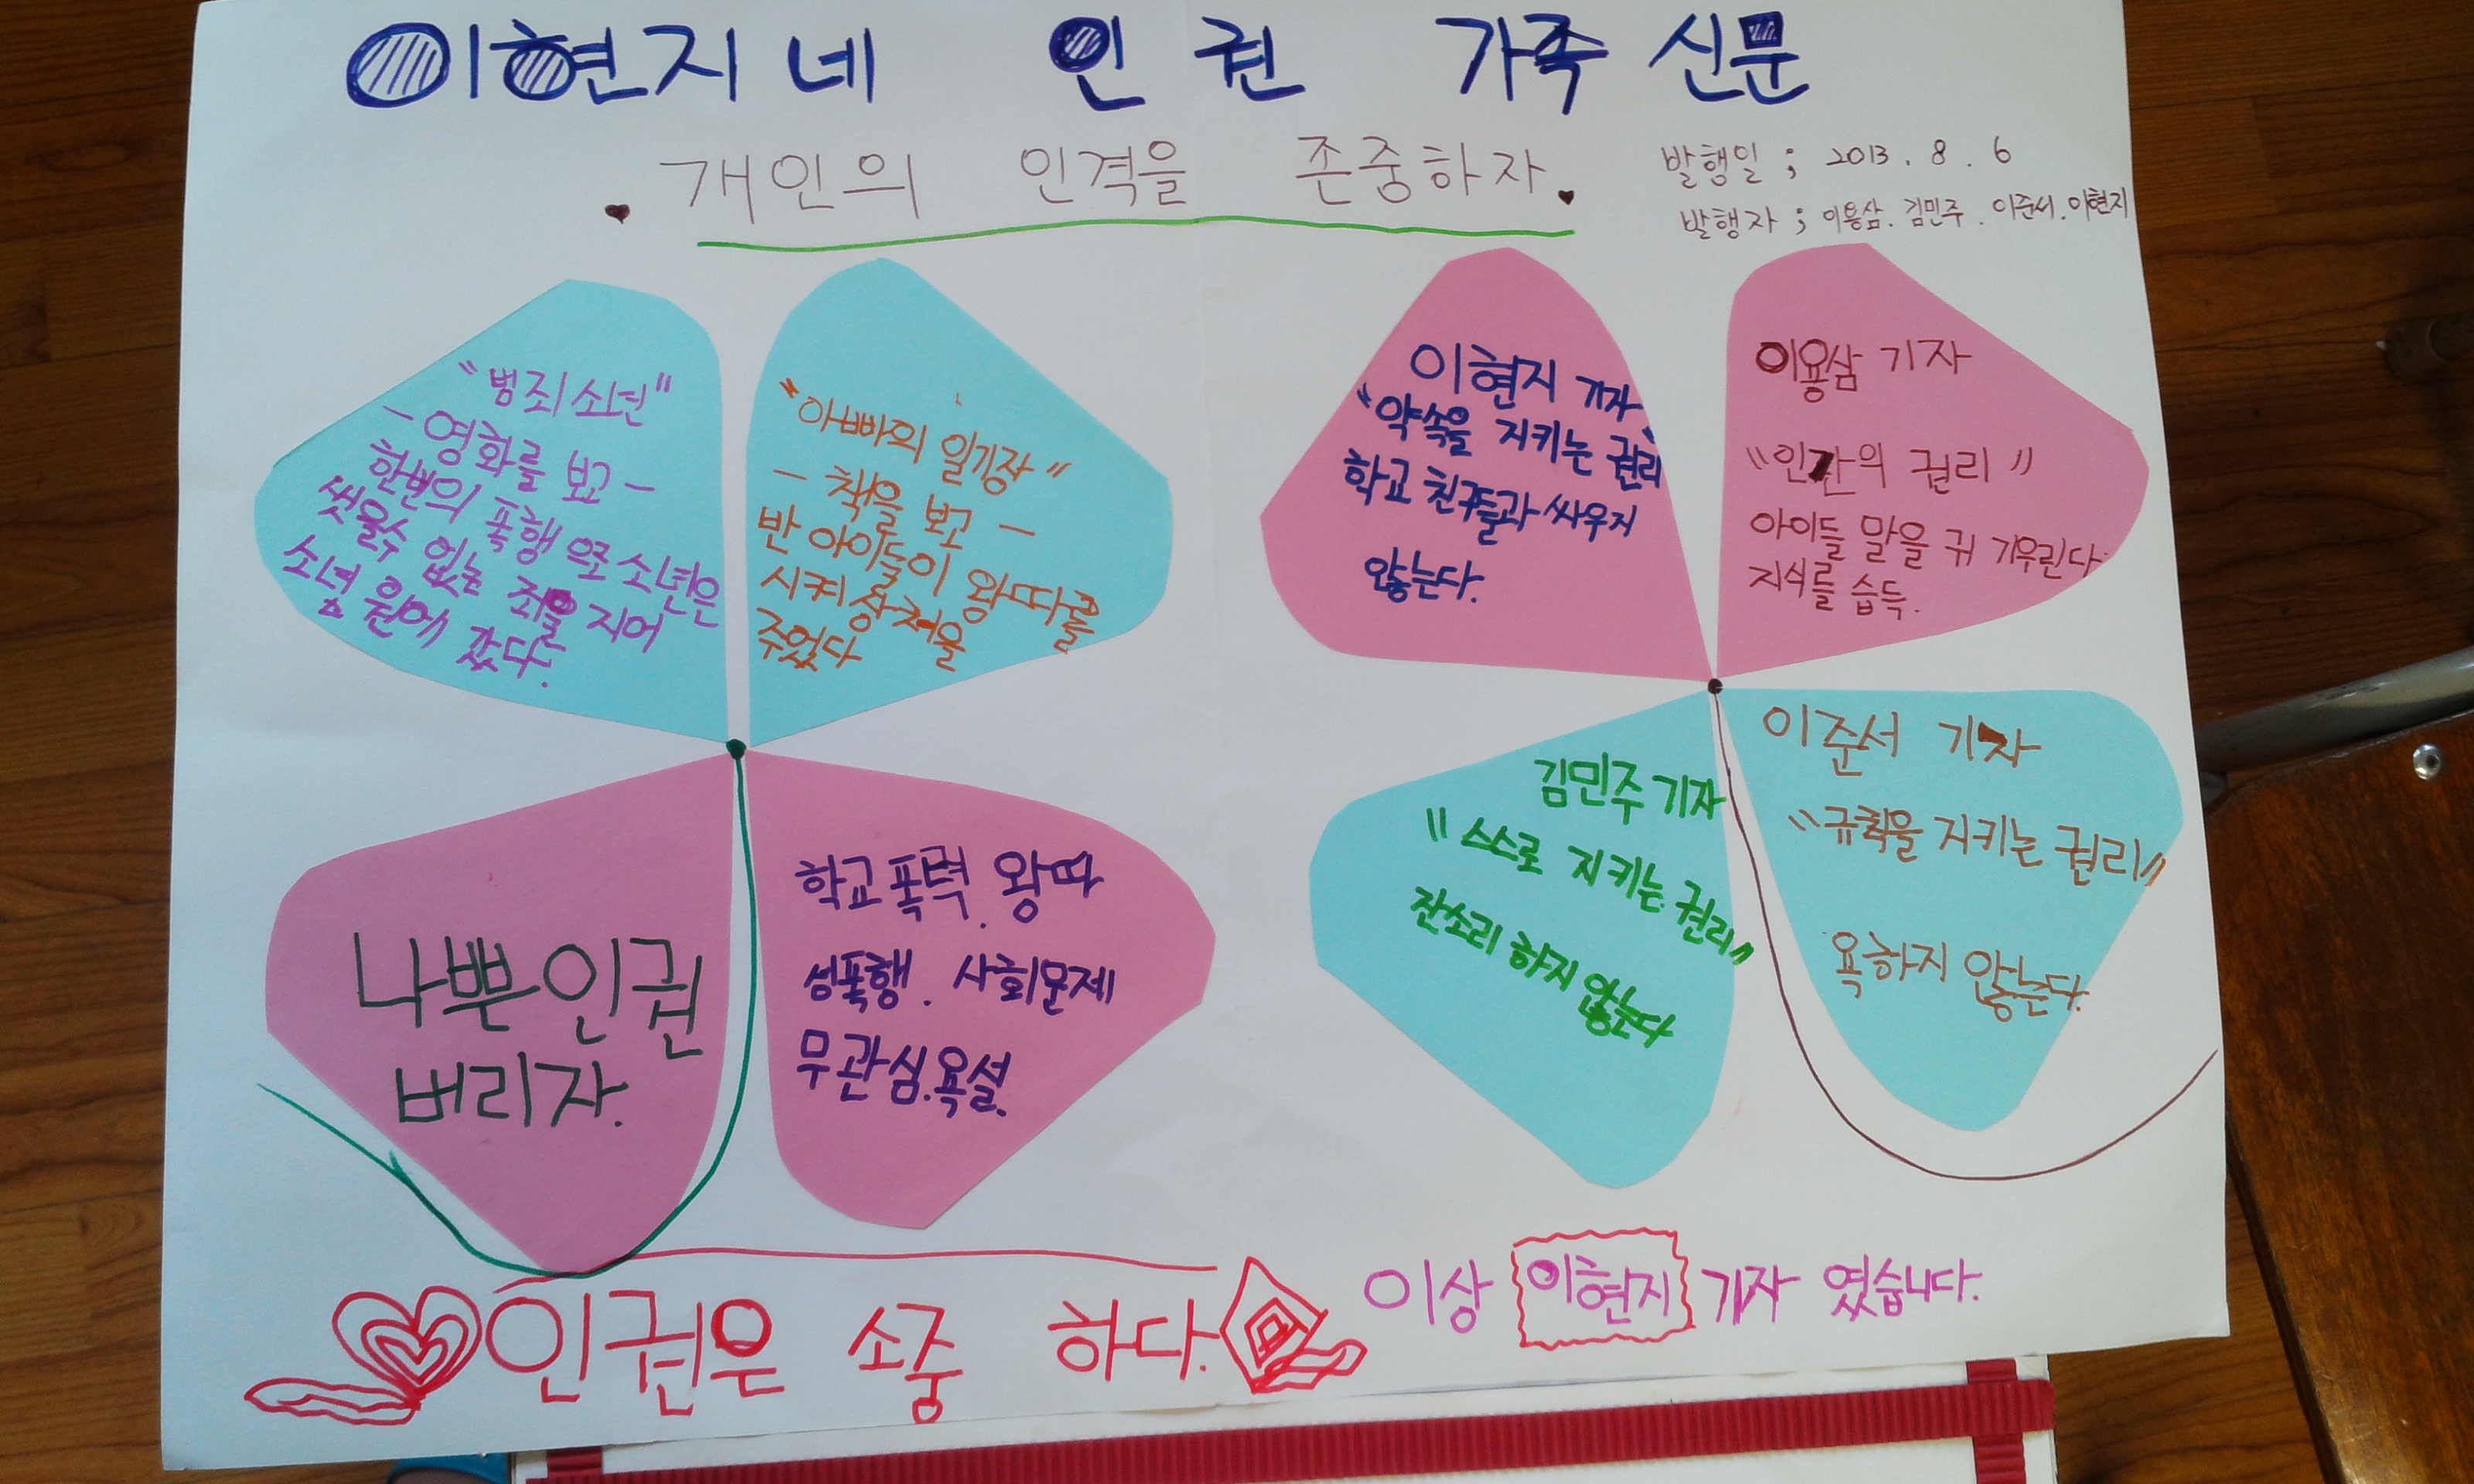 이현지네 인권 가족신문
개인의 인격을 존중하자.
발행일 ; 2013. 8. 6
발행자 ; 이용삼. 김민주. 이준서. 이현지
"범죄소년"
- 영화를 보고 -
한번의 폭행으로 소년은
씻울수 없는 죄을 지어
소년원에 갔다.
"아빠의 일기장"
- 책을 보고 -
반 아이들이 왕따를
시켜 상처을
주었다
나쁜인권
버리자.
학교폭력. 왕따
성폭행. 사회문제
무관심.욕설.
이현지 기자
"약속을 지키는 권리"
학교 친구들과 싸우지
않는다.
이용삼 기자
"인간의 권리"
아이들 말을 귀 기우린다.
지식를 습득.
김민주 기자
"스스로 지키는 권리"
잔소리 하지 않는다
이준서 기자
"규칙을 지키는 권리"
욕하지 않는다.
인권은 소중 하다.
이상 이현지 기자 였습니다.